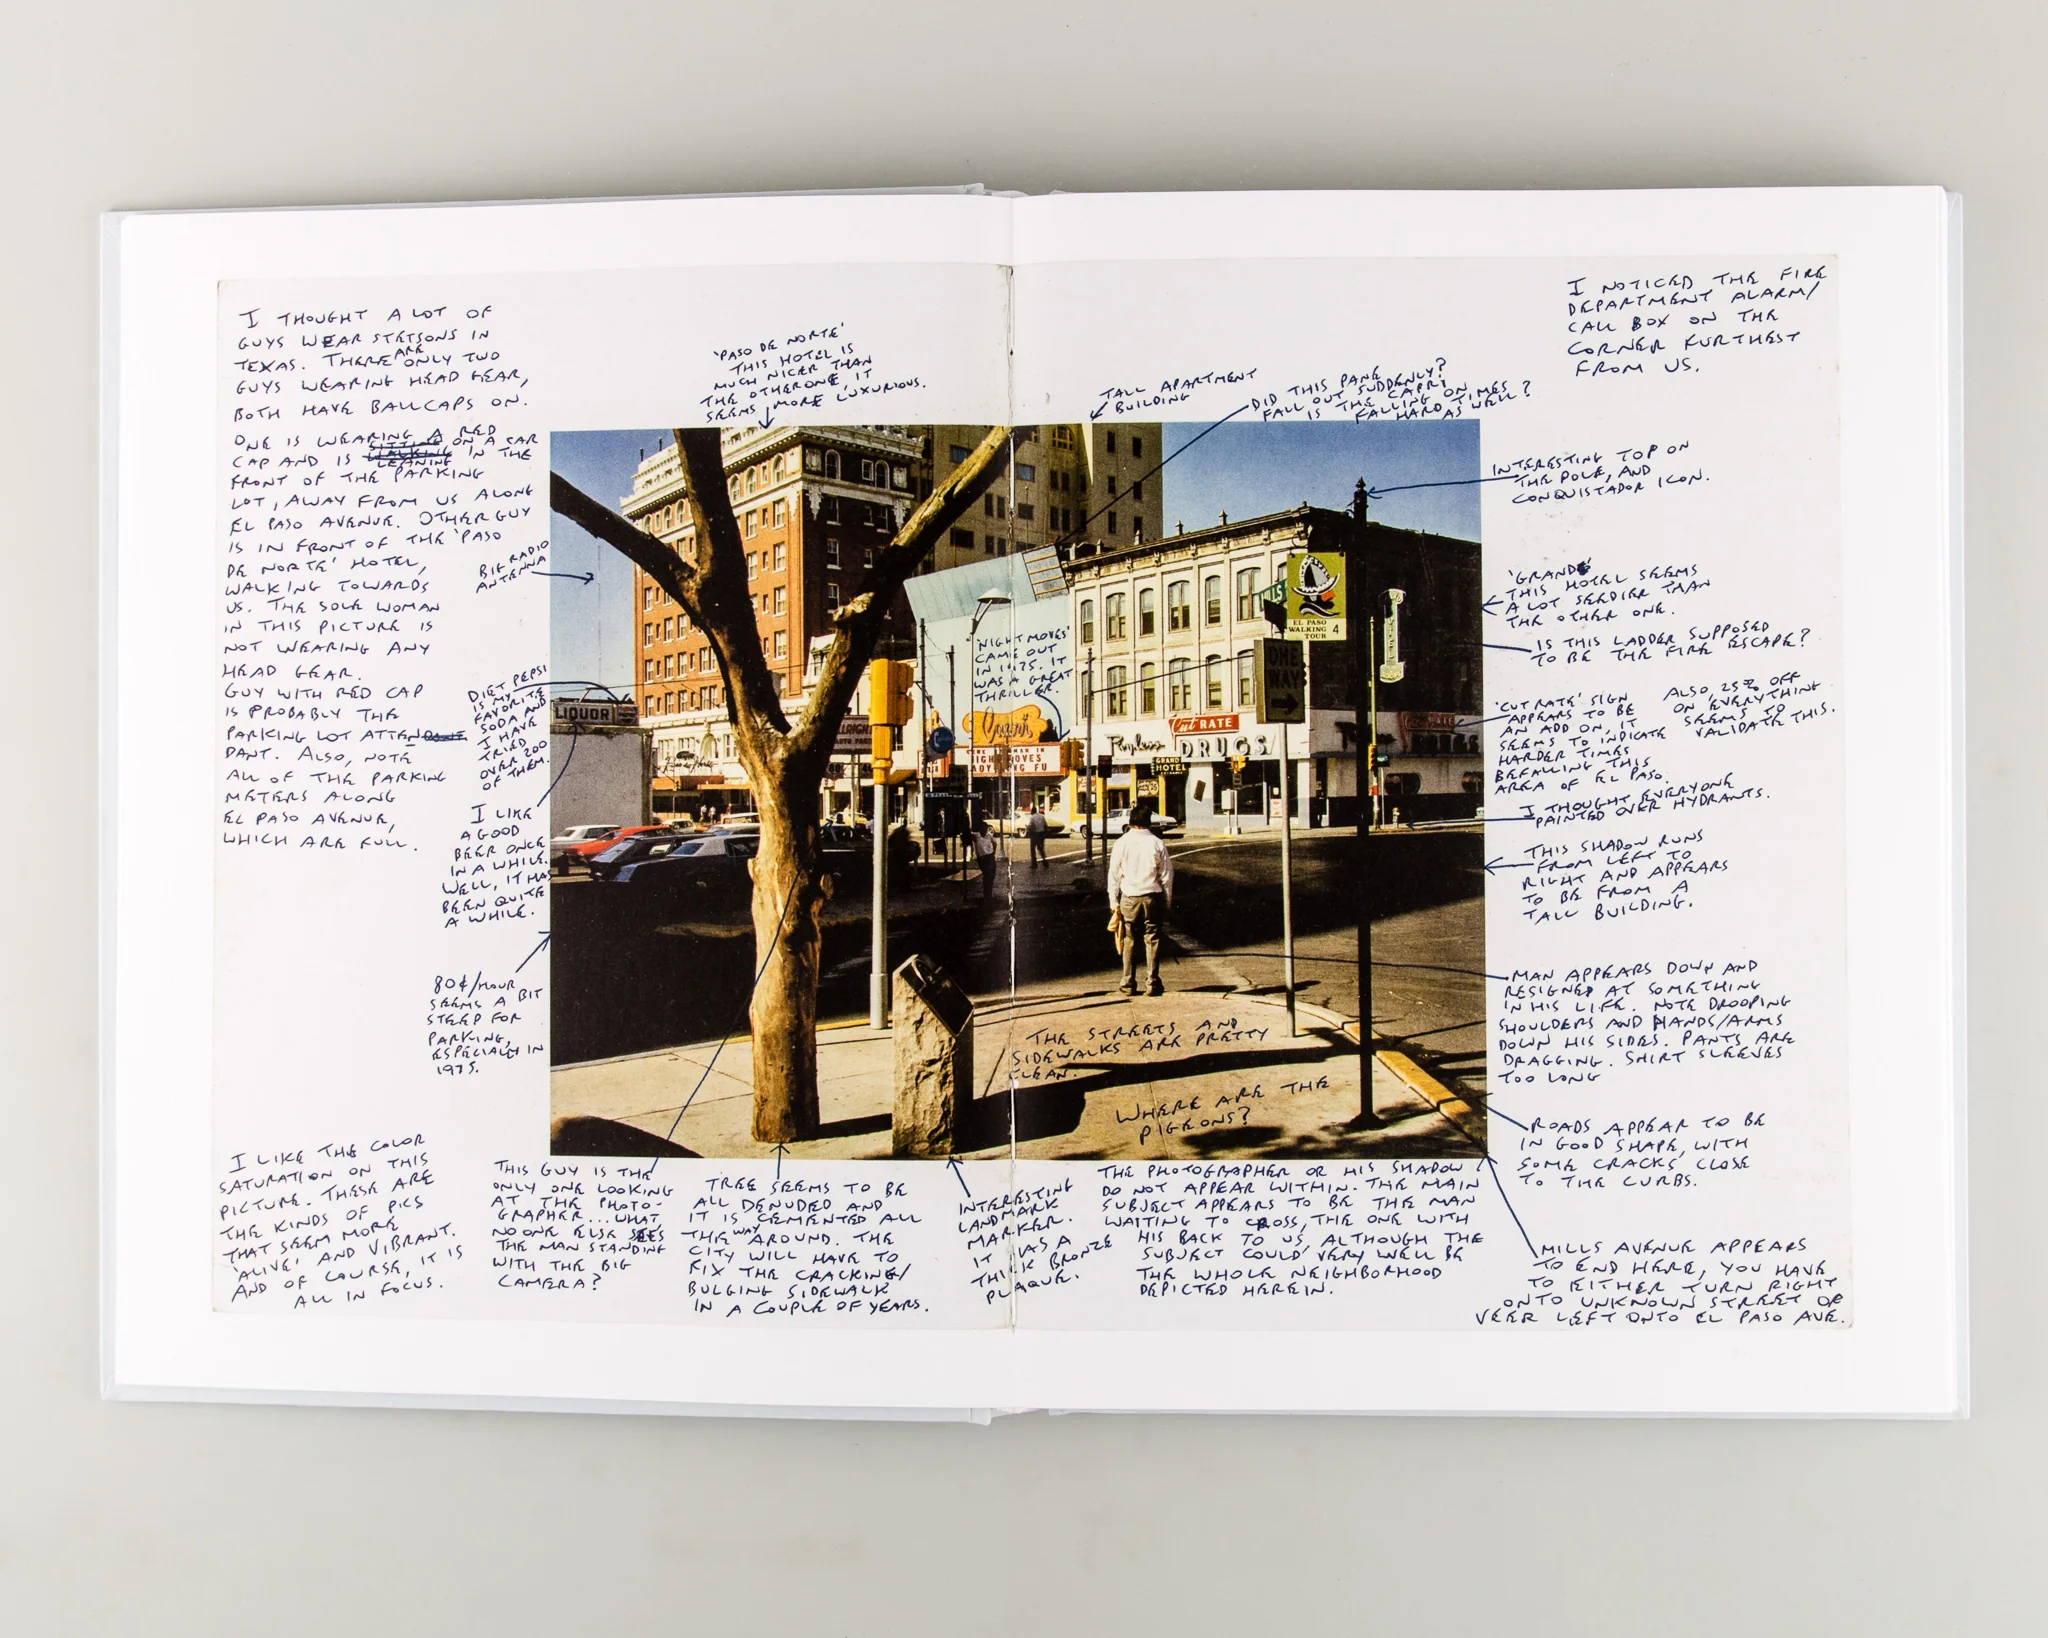 I THOUGHT A LOT OF
GUYS WEAR STETSONS IN
TEXAS. THERE ARE ONLY TWO
GUYS WEARING HEAD GEAR,
BOTH HAVE BALLCAPS ON.
ONE IS WEARING A RED
CAP AND IS SITTING ON A CAR
LEANING IN THE
FRONT OF THE PARKING
LOT, AWAY FROM US ALONG
EL PASO AVENUE. OTHER GUY
IS IN FRONT OF THE 'PASO
DE NORTE' HOTEL,
WALKING TOWARDS
US. THE SOLE WOMAN
IN THIS PICTURE IS
NOT WEARING ANY
HEAD GEAR.
GUY WITH RED CAP
IS PROBABLY THE
PARKING LOT ATTEN
DANT. ALSO, NOTE
ALL OF THE PARKING
METERS ALONG
EL PASO AVENUE,
WHICH ARE FULL.
'PASO DE NORTE'
THIS HOTEL IS
MUCH NICER THAN
THE OTHER ONE, IT
SEEMS MORE LUXURIOUS.
TALL APARTMENT
BUILDING
DID THIS PANE
FALL OUT SUDDENLY?
IS THE CAPRI
FALLING ON
HARD TIMES
AS WELL?
I NOTICED THE FIRE
DEPARTMENT ALARM/
CALL BOX ON THE
CORNER FURTHEST
FROM US.
INTERESTING TOP ON
THE POLE, AND
CONQUISTADOR ICON.
BIG RADIO
ANTENNA
'GRAND'
THIS HOTEL SEEMS
A LOT SEEDIER THAN
THE OTHER ONE.
IS THIS LADDER SUPPOSED
TO BE THE FIRE ESCAPE?
'NIGHT MOVES'
CAME OUT
IN 1975. IT
WAS A GREAT
THRILLER.
DIET PEPSI
IS MY
FAVORITE
SODA AND
I HAVE
TRIED
OVER 200
OF THEM.
'CUT RATE' SIGN
APPEARS TO BE
AN ADD ON, IT
SEEMS TO INDICATE
HARDER TIMES
BEFALLING THIS
AREA OF EL PASO.
ALSO, 25% OFF
ON EVERYTHING
SEEMS TO
VALIDATE THIS.
I THOUGHT EVERYONE
PAINTED OVER HYDRANTS.
I LIKE
A GOOD
BEER ONCE
IN A WHILE.
WELL, IT HAS
BEEN QUITE
A WHILE.
THIS SHADOW RUNS
FROM LEFT TO
RIGHT AND APPEARS
TO BE FROM A
TALL BUILDING.
80¢/HOUR
SEEMS A BIT
STEEP FOR
PARKING,
ESPECIALLY IN
1975.
MAN APPEARS DOWN AND
RESIGNED AT SOMETHING
IN HIS LIFE. NOTE DROOPING
SHOULDERS AND HANDS/ARMS
DOWN HIS SIDES. PANTS ARE
DRAGGING. SHIRT SLEEVES
TOO LONG
THE STREETS AND
SIDEWALKS ARE PRETTY
CLEAN.
WHERE ARE THE
PIGEONS?
ROADS APPEAR TO BE
IN GOOD SHAPE, WITH
SOME CRACKS CLOSE
TO THE CURBS.
I LIKE THE COLOR
SATURATION ON THIS
PICTURE. THESE ARE
THE KINDS OF PICS
THAT SEEM MORE
'ALIVE' AND VIBRANT.
AND OF COURSE, IT IS
ALL IN FOCUS.
THIS GUY IS THE
ONLY ONE LOOKING
AT THE PHOTO-
GRAPHER...WHAT,
NO ONE ELSE SEES
THE MAN STANDING
WITH THE BIG
CAMERA?
TREE SEEMS TO BE
ALL DENUDED AND
IT IS CEMENTED ALL
THE WAY AROUND. THE
CITY WILL HAVE TO
FIX THE CRACKING/
BULGING SIDEWALK
IN A COUPLE OF YEARS.
INTERESTING
LANDMARK
MARKER.
IT HAS A
THICK BRONZE
PLAQUE.
THE PHOTOGRAPHER OR HIS SHADOW
DO NOT APPEAR WITHIN. THE MAIN
SUBJECT APPEARS TO BE THE MAN
WAITING TO CROSS, THE ONE WITH
HIS BACK TO US, ALTHOUGH THE
SUBJECT COULD VERY WELL BE
THE WHOLE NEIGHBORHOOD
DEPICTED HEREIN.
MILLS AVENUE APPEARS
TO END HERE, YOU HAVE
TO EITHER TURN RIGHT
ONTO UNKNOWN STREET OR
VEER LEFT ONTO EL PASO AVE.
LIQUOR
Capri
NIGHT MOVES
LADY KUNG FU
Cut RATE
Payless DRUGS
GRAND
HOTEL
MILLS
EL PASO
WALKING
TOUR 4
ONE
WAY